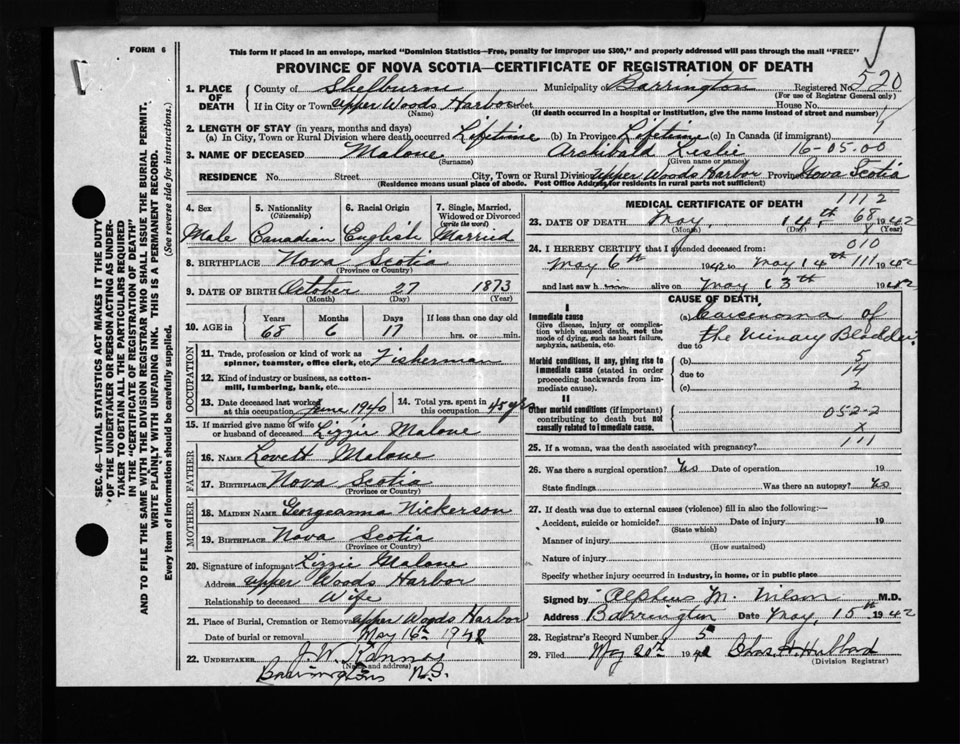 FORM 6
This form if placed in an envelope, marked "Dominion Statistics—Free, penalty for improper use $300," and properly addressed will pass through the mail "FREE"
PROVINCE OF NOVA SCOTIA—CERTIFICATE OF REGISTRATION OF DEATH
520
1. PLACE OF DEATH County of Shelburne Municipality of Barrington Registered No.
(For use of Registrar General only)
If in City or Town Upper Woods Harbor Street House No.
(Name) (If death occurred in a hospital or institution, give the name instead of street and number)
2. LENGTH OF STAY (in years, months and days)
(a) In City, Town or Rural Division where death occurred Lifetime (b) In Province Lifetime (c) In Canada (if immigrant)
3. NAME OF DECEASED Malone Archibald Leslie 16-05.00
(Surname) (Given name or names)
RESIDENCE No. Street City, Town or Rural Division Upper Woods Harbor Province Nova Scotia
(Residence means usual place of abode. Post Office Address for residents in rural parts not sufficient)
4. Sex 5. Nationality (Citizenship) 6. Racial Origin 7. Single, Married, Widowed or Divorced (write the word)
Male Canadian English Married
8. BIRTHPLACE Nova Scotia
(Province or Country)
9. DATE OF BIRTH October 27 1873
(Month) (Day) (Year)
10. AGE in Years Months Days If less than one day old
68 6 17 hrs. or min.
OCCUPATION
11. Trade, profession or kind of work as spinner, teamster, office clerk, etc. Fisherman
12. Kind of industry or business, as cotton-mill, lumbering, bank, etc.
13. Date deceased last worked at this occupation June 1940 14. Total yrs. spent in this occupation 45 yrs
15. If married give name of wife or husband of deceased Lizzie Malone
FATHER
16. NAME Lovett Malone
17. BIRTHPLACE Nova Scotia
(Province or Country)
MOTHER
18. MAIDEN NAME Georgeanna Nickerson
19. BIRTHPLACE Nova Scotia
(Province or Country)
20. Signature of informant Lizzie Malone
Address Upper Woods Harbor
Relationship to deceased Wife
21. Place of Burial, Cremation or Removal Upper Woods Harbor
Date of burial or removal May 16th 1942
22. UNDERTAKER J. W. Kenney
(Name and address)
Barrington N.S.
MEDICAL CERTIFICATE OF DEATH
1112
23. DATE OF DEATH May 14th 68 1942
(Month) (Day) (Year)
24. I HEREBY CERTIFY that I attended deceased from:
010
May 6th 1942 to May 14th 111 1942
and last saw h alive on May 13th 1942
CAUSE OF DEATH
I
Immediate cause (a) Carcinoma of
Give disease, injury or complication which caused death, not the mode of dying, such as heart failure, asphyxia, asthenia, etc.
the Urinary Bladder
due to
Morbid conditions, if any, giving rise to immediate cause (stated in order proceeding backwards from immediate cause).
(b) 5
due to 14
(c) 2
II
Other morbid conditions (if important) contributing to death but not causally related to immediate cause.
052-2
X
25. If a woman, was the death associated with pregnancy? 111
26. Was there a surgical operation? Date of operation 19
State findings Was there an autopsy?
27. If death was due to external causes (violence) fill in also the following:—
Accident, suicide or homicide? Date of injury 19
(State which)
Manner of injury
(How sustained)
Nature of injury
Specify whether injury occurred in industry, in home, or in public place
Signed by M. Wilson M.D.
Address Barrington Date May, 15th 1942
28. Registrar's Record Number 5
29. Filed May 20th 1942 Chas. H. Hubbard
(Division Registrar)
SEC. 46—VITAL STATISTICS ACT MAKES IT THE DUTY
OF THE UNDERTAKER OR PERSON ACTING AS UNDER-
TAKER TO OBTAIN ALL THE PARTICULARS REQUIRED
IN THE "CERTIFICATE OF REGISTRATION OF DEATH"
AND TO FILE THE SAME WITH THE DIVISION REGISTRAR WHO SHALL ISSUE THE BURIAL PERMIT.
WRITE PLAINLY WITH UNFADING INK. THIS IS A PERMANENT RECORD.
Every item of information should be carefully supplied. (See reverse side for instructions.)